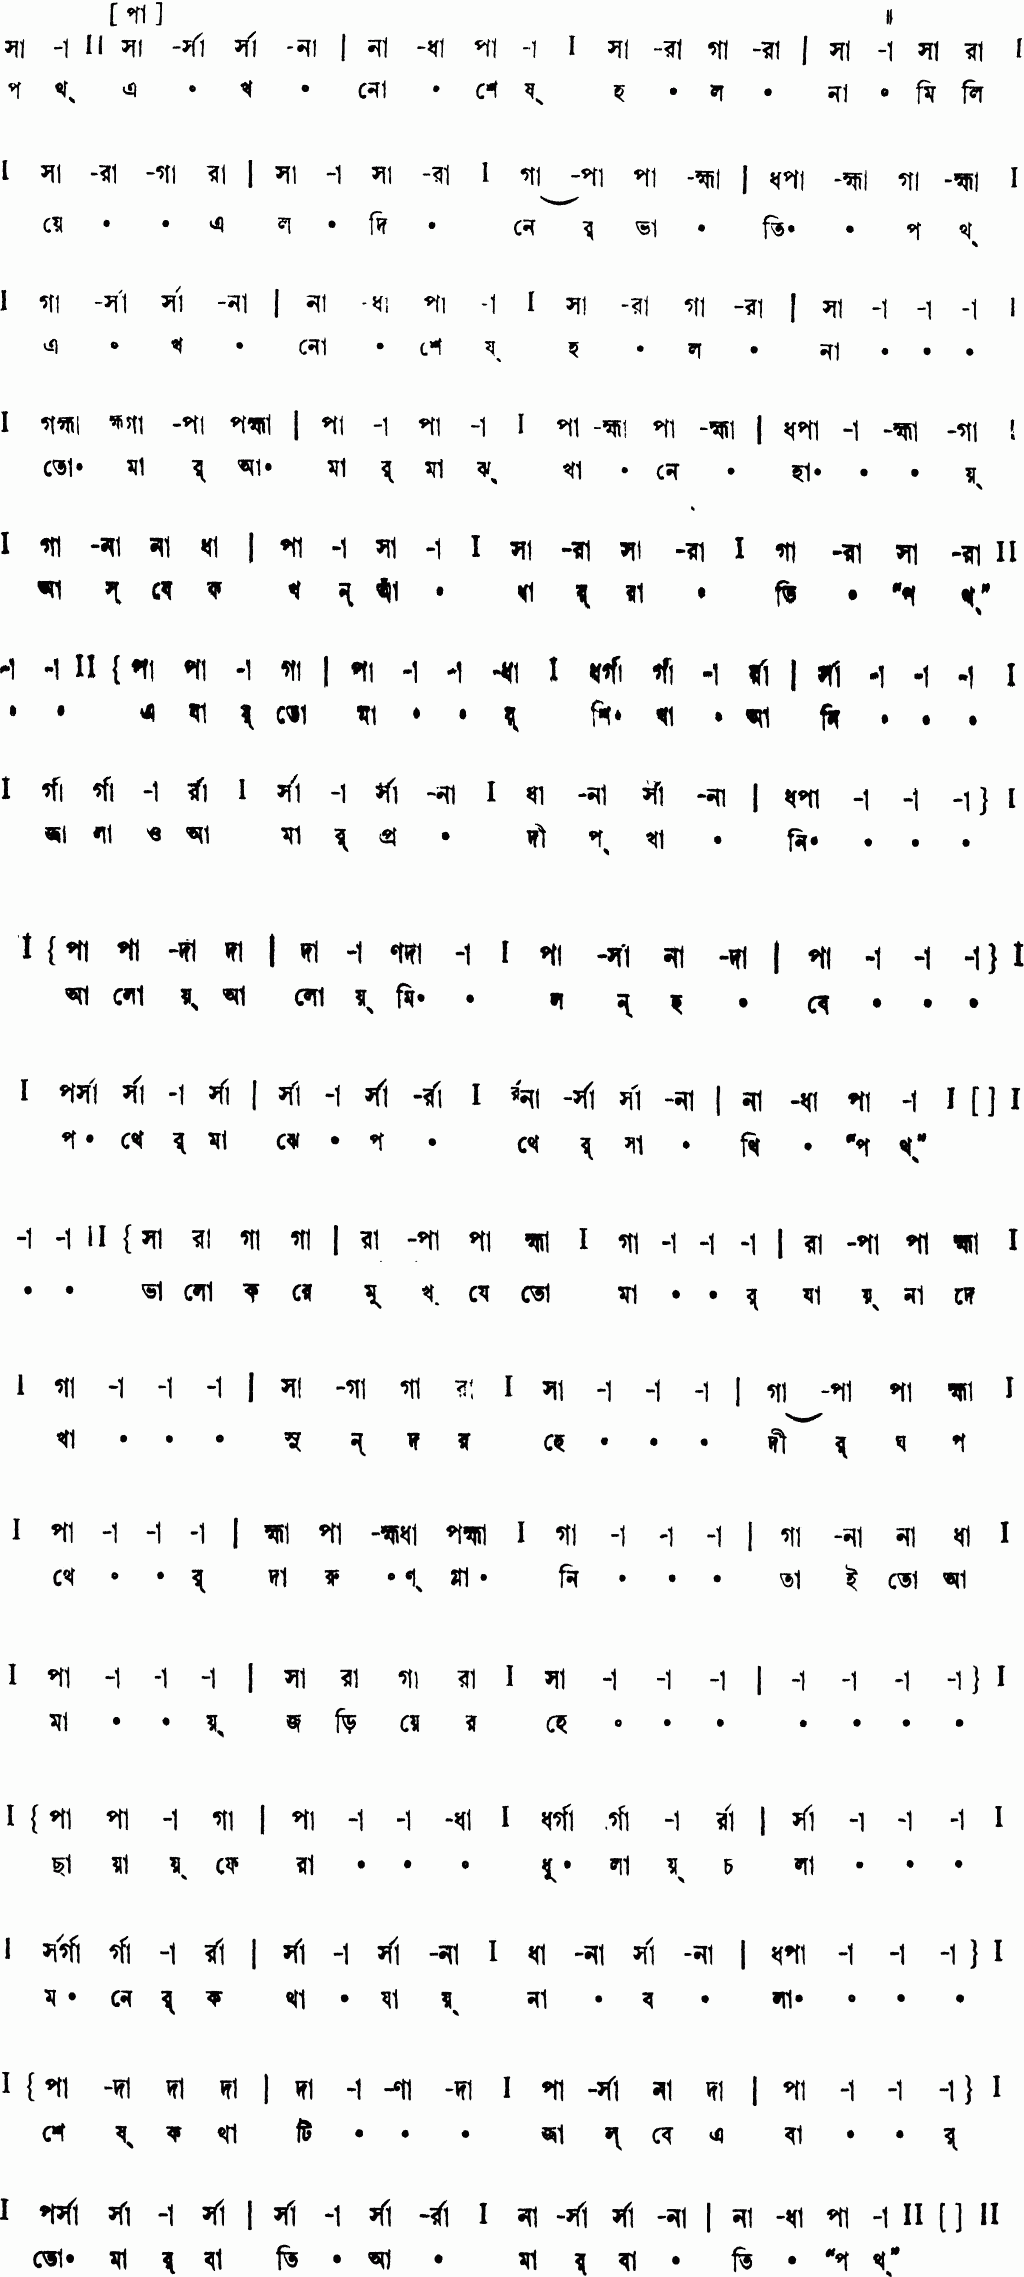 [ পা ] ॥
সা -া II সা -র্সা র্সা -না | না -ধা পা -া I সা -রা গা -রা | সা -া সা রা I
প থ্ এ • খ • নো • শে ষ্ হ • ল • না • মি লি
I সা -রা -গা রা | সা -া সা -রা I গা -পা পা -হ্মা | ধপা -হ্মা গা -হ্মা I
য়ে • • এ ল • দি • নে র্ ভা • তি• • প থ্
I গা -র্সা র্সা -না | না -ধা পা -া I সা -রা গা -রা | সা -া -া -া I
এ • খ • নো • শে ষ্ হ • ল • না • • •
I গহ্মা হ্মগা -পা পহ্মা | পা -া পা -া I পা -হ্মা পা -হ্মা | ধপা -া -হ্মা -গা I
তো• মা র্ আ• মা র্ মা ঝ্ খা • নে • হা• • • য়্
I গা -না না ধা | পা -া সা -া I সা -রা সা -রা I গা -রা সা -রা II
আ স্ বে ক খ ন্ আঁ • ধা র্ রা • তি • “প থ্”
-া -া II { পা পা -া গা | পা -া -া -ধা I ধর্গা র্গা -া র্রা | র্সা -া -া -া I
• • এ বা র্ তো মা • • র্ শি• খা • আ নি • • •
I র্গা র্গা -া র্রা I র্সা -া র্সা -না I ধা -না র্সা -না | ধপা -া -া -া } I
জ্বা লা ও আ মা র্ প্র • দী প্ খা • নি• • • •
I { পা পা -দা দা | দা -া ণদা -া I পা -র্সা না -দা | পা -া -া -া } I
আ লো য়্ আ লো য়্ মি• • ল ন্ হ • বে • • •
I পর্সা র্সা -া র্সা | র্সা -া র্সা -র্রা I র্রনা -র্সা র্সা -না | না -ধা পা -া I [ ] I
প• থে র্ মা ঝে • প • থে র্ সা • থি • “প থ্”
-া -া II { সা রা গা গা | রা -পা পা হ্মা I গা -া -া -া | রা -পা পা হ্মা I
• • ভা লো ক রে মু খ্ যে তো মা • • র্ যা য়্ না দে
I গা -া -া -া | সা -গা গা রা I সা -া -া -া | গা -পা পা হ্মা I
খা • • • সু ন্ দ র হে • • • দী র্ ঘ প
I পা -া -া -া | হ্মা পা -হ্মধা পহ্মা I গা -া -া -া | গা -না না ধা I
থে • • র্ দা রু •ণ্ গ্লা• নি • • • তা ই তো আ
I পা -া -া -া | সা রা গা রা I সা -া -া -া | -া -া -া -া } I
মা • • য়্ জ ড়ি য়ে র হে • • • • • • •
I { পা পা -া গা | পা -া -া -ধা I ধর্গা র্গা -া র্রা | র্সা -া -া -া I
ছা য়া য়্ ফে রা • • • ধু• লা য়্ চ লা • • •
I র্সর্গা র্গা -া র্রা | র্সা -া র্সা -না I ধা -না র্সা -না | ধপা -া -া -া } I
ম• নে র্ ক থা • যা য়্ না • ব • লা• • • •
I { পা -দা দা দা | দা -া -ণা -দা I পা -র্সা না দা | পা -া -া -া } I
শে ষ্ ক থা টি • • • জ্বা ল্ বে এ বা • • র্
I পর্সা র্সা -া র্সা | র্সা -া র্সা -র্রা I না -র্সা র্সা -না | না -ধা পা -া II [ ] II
তো• মা র্ বা তি • আ • মা র্ বা • তি • “প থ্”